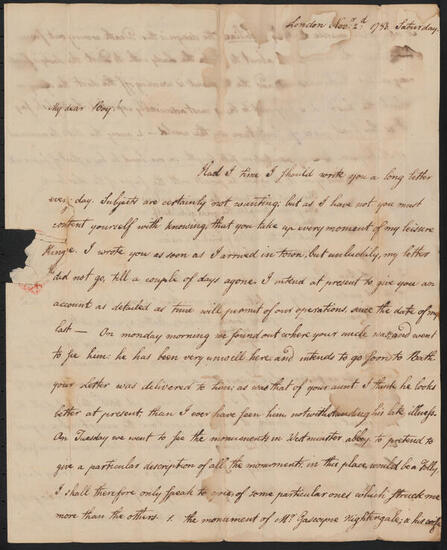 London Nov.r 2.d 1783 Saturday.
My dear Hoy!
Had I time I should write you a long letter
every day. Subjects are certainly not wanting; but as I have not, you must
content yourself with knowing, that you take up every moment of my leisure
time. I wrote you as soon as I arrived in town, but unluckily, my letter
did not go, till a couple of days agone. I intend at present to give you an
account as detailed as time will permit of our operations, since the date of my
last — On monday morning we found out where your uncle was and went
to see him: he has been very unwell here, and intends to go soon to Bath
your letter was delivered to him; as was that of your aunt. I think he looks
better at present, than I ever have seen him, notwithstanding his late illness.
On Tuesday we went to see the monuments in Westminster abbey, to pretend to
give a particular description of all the monuments, in this place would be a Folly,
I shall therefore only speak to you of some particular ones which struck me
more than the others. 1. the monument of Mr. Gascoyne Nightingale; & his wife